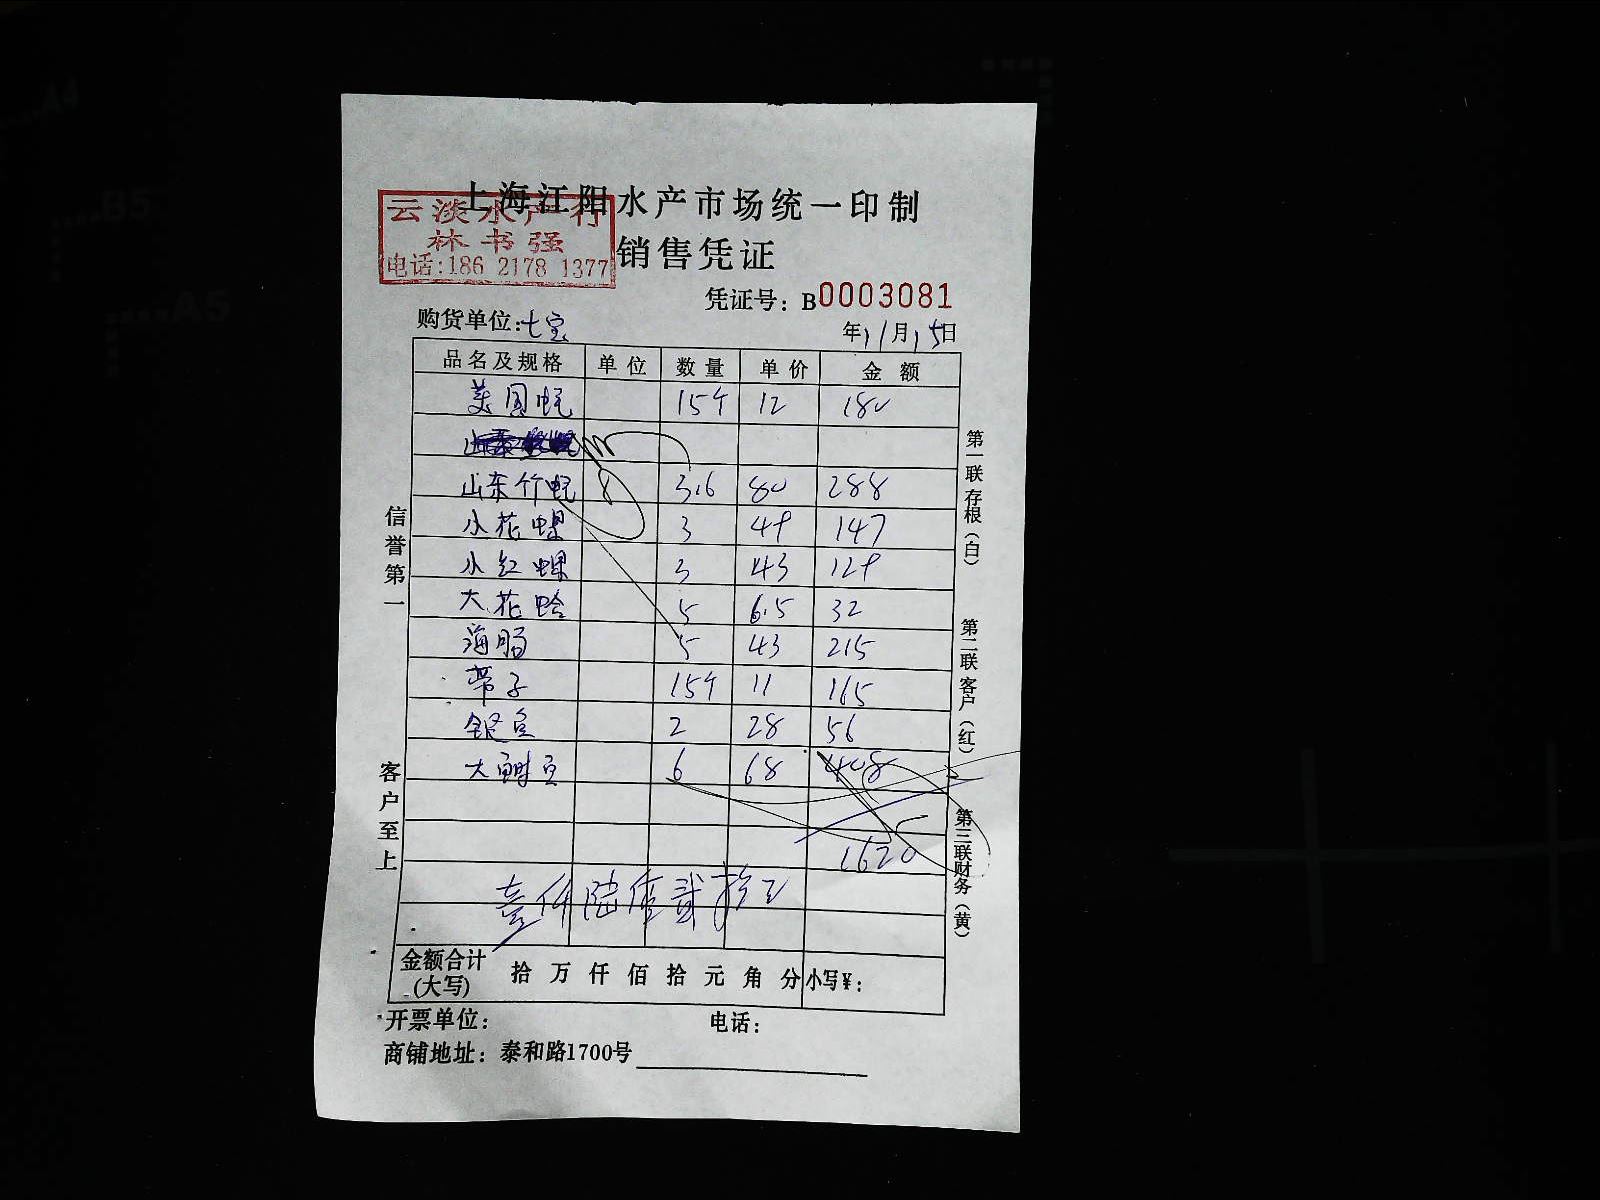 上海江阳水产市场统一印制
云淡水产行
林书强
电话:186 2178 1377
销售凭证
凭证号：B0003081
购货单位:七宝
年11月15日
品名及规格 单位 数量 单价 金额
美国蚝 15个 12 180
山东竹蛏 3.6 80 288
小花螺 3 49 147
小红螺 3 43 129
大花蛤 5 6.5 32
海肠 5 43 215
带子 15个 11 165
银鱼 2 28 56
大鲥鱼 6 68 408
1620
壹仟陆佰贰拾元
金额合计(大写) 拾 万 仟 佰 拾 元 角 分 小写¥:
开票单位: 电话:
商铺地址：泰和路1700号
信誉第一
客户至上
第一联存根(白)
第二联客户(红)
第三联财务(黄)